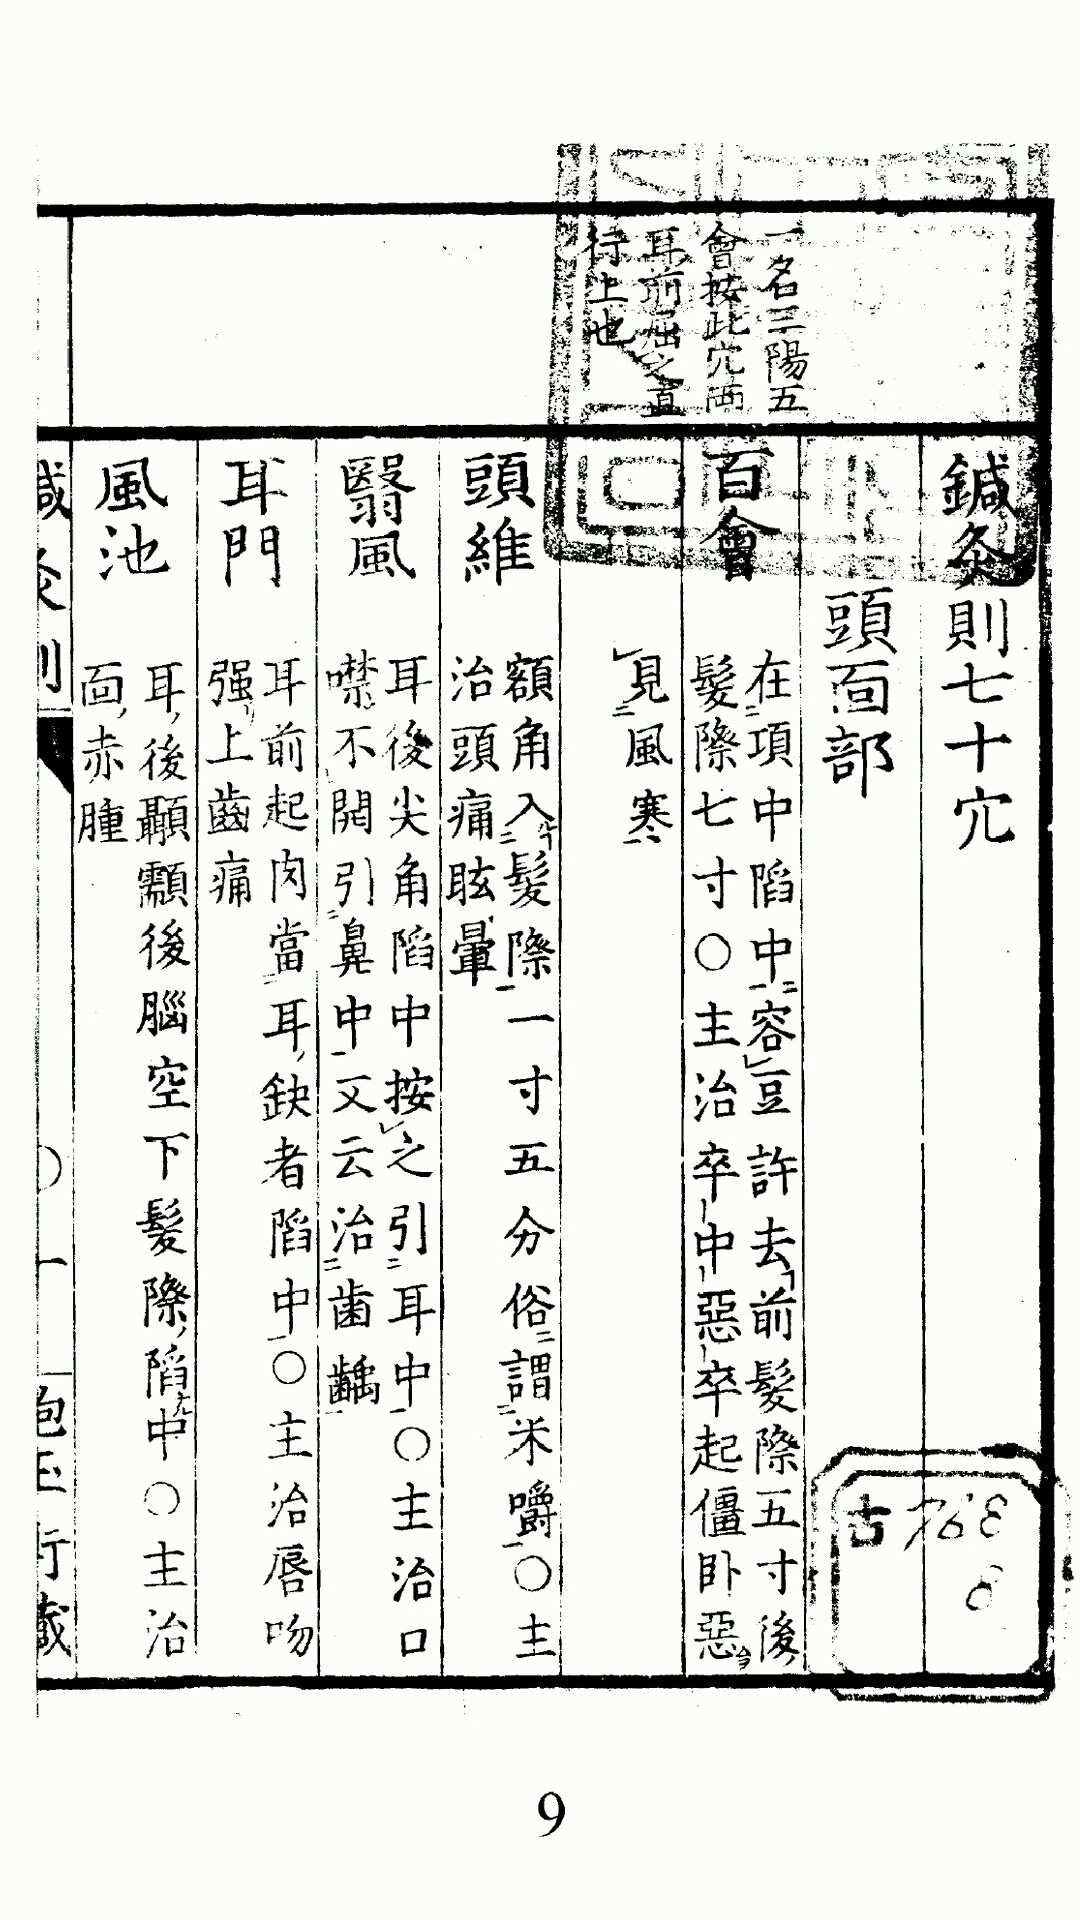 鍼灸則七十穴
頭面部
一名三陽五
會按此穴兩
耳前屈之直
行上也
百會
在項中陷中容豆許去前髮際五寸後
髮際七寸○主治卒中惡卒起僵卧惡
見風寒
頭維
額角入髮際一寸五分俗謂米嚼○主
治頭痛眩暈
翳風
耳後尖角陷中按之引耳中○主治口
噤不開引鼻中又云治齒齲
耳門
耳前起肉當耳缺者陷中○主治唇吻
强上齒痛
風池
耳後顳顬後腦空下髮際陷中○主治
面赤腫
鍼灸則
○一
抱玉行藏
古 768
8
9